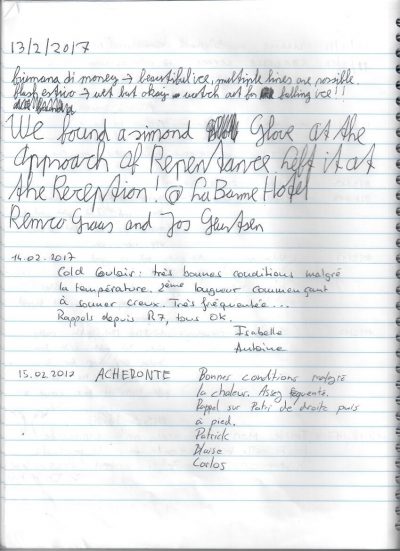 13/2/2017
fiumana di money → beautiful ice, multiple lines are possible.
flash estivo → wet but okay → watch out for falling ice!!
We found a simond Glove at the
approach of Repentance. Left it at
the Reception! @ La Barme Hotel
Remco Graas and Jos
14.02.2017
Cold Couloir : très bonnes conditions malgré
la température. 2ème longueur commençant
à sonner creux. Très fréquentée...
Rappels depuis R7, tous OK.
Isabelle
Antoine
15.02.2017 ACHERONTE Bonnes conditions malgré
la chaleur. Assez fréquenté.
Rappel sur Patri de droite puis
à pied.
Patrick
Blaise
Carlos